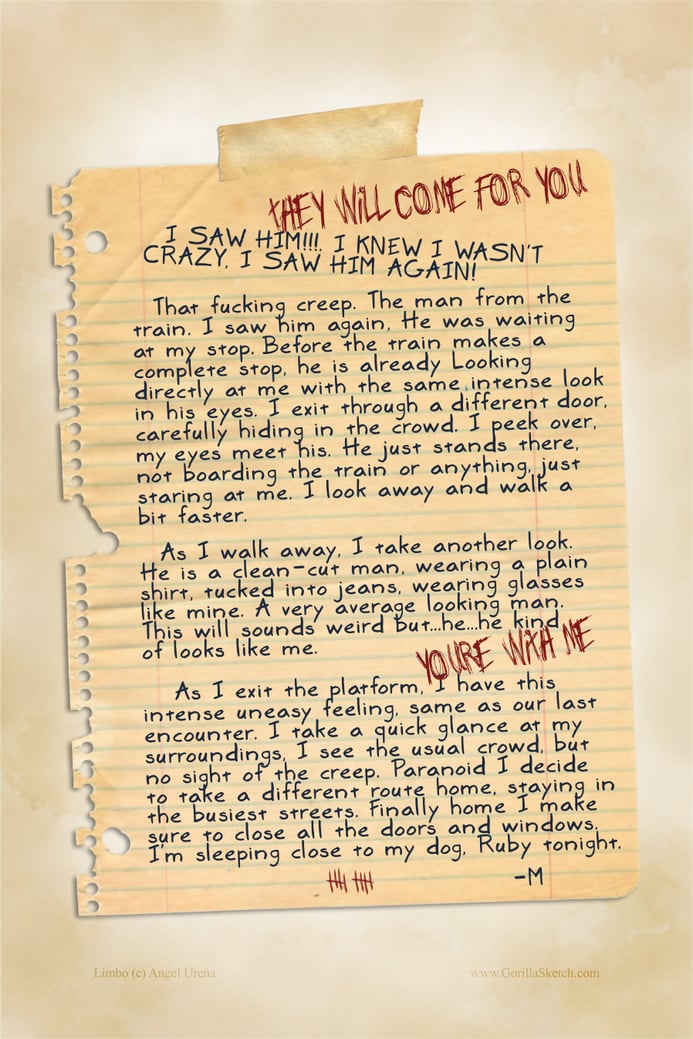 tHEY WiLL COME FOR YOU
I SAW HIM!!!. I KNEW I WASN'T
CRAZY, I SAW HIM AGAIN!
That fucking creep. The man from the
train. I saw him again, He was waiting
at my stop. Before the train makes a
complete stop, he is already Looking
directly at me with the same intense look
in his eyes. I exit through a different door,
carefully hiding in the crowd. I peek over,
my eyes meet his. He just stands there,
not boarding the train or anything, just
staring at me. I look away and walk a
bit faster.
As I walk away, I take another look.
He is a clean-cut man, wearing a plain
shirt, tucked into jeans, wearing glasses
like mine. A very average looking man.
This will sounds weird but...he...he kind
of looks like me.
YOURE WitH ME
As I exit the platform, I have this
intense uneasy feeling, same as our last
encounter. I take a quick glance at my
surroundings, I see the usual crowd, but
no sight of the creep. Paranoid I decide
to take a different route home, staying in
the busiest streets. Finally home I make
sure to close all the doors and windows,
I'm sleeping close to my dog, Ruby tonight.
-M
Limbo (c) Angel Ureña
www.GorillaSketch.com